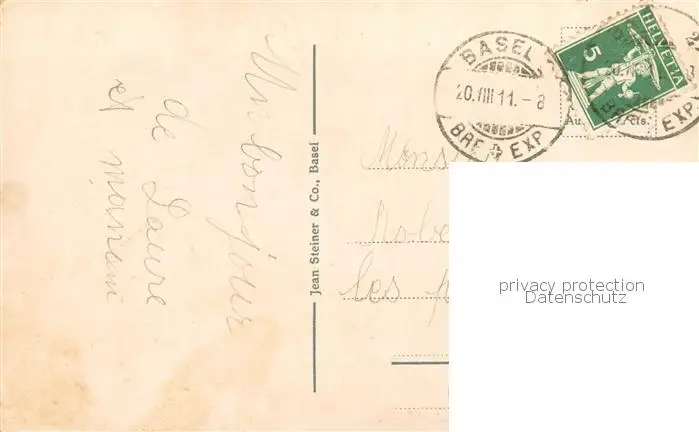 Un bonjour
de Laure
et maman
Jean Steiner & Co., Basel
BASEL
20.VIII 11. - 8
BRF EXP
HELVETIA
5
EXP
Les
privacy protection
Datenschutz